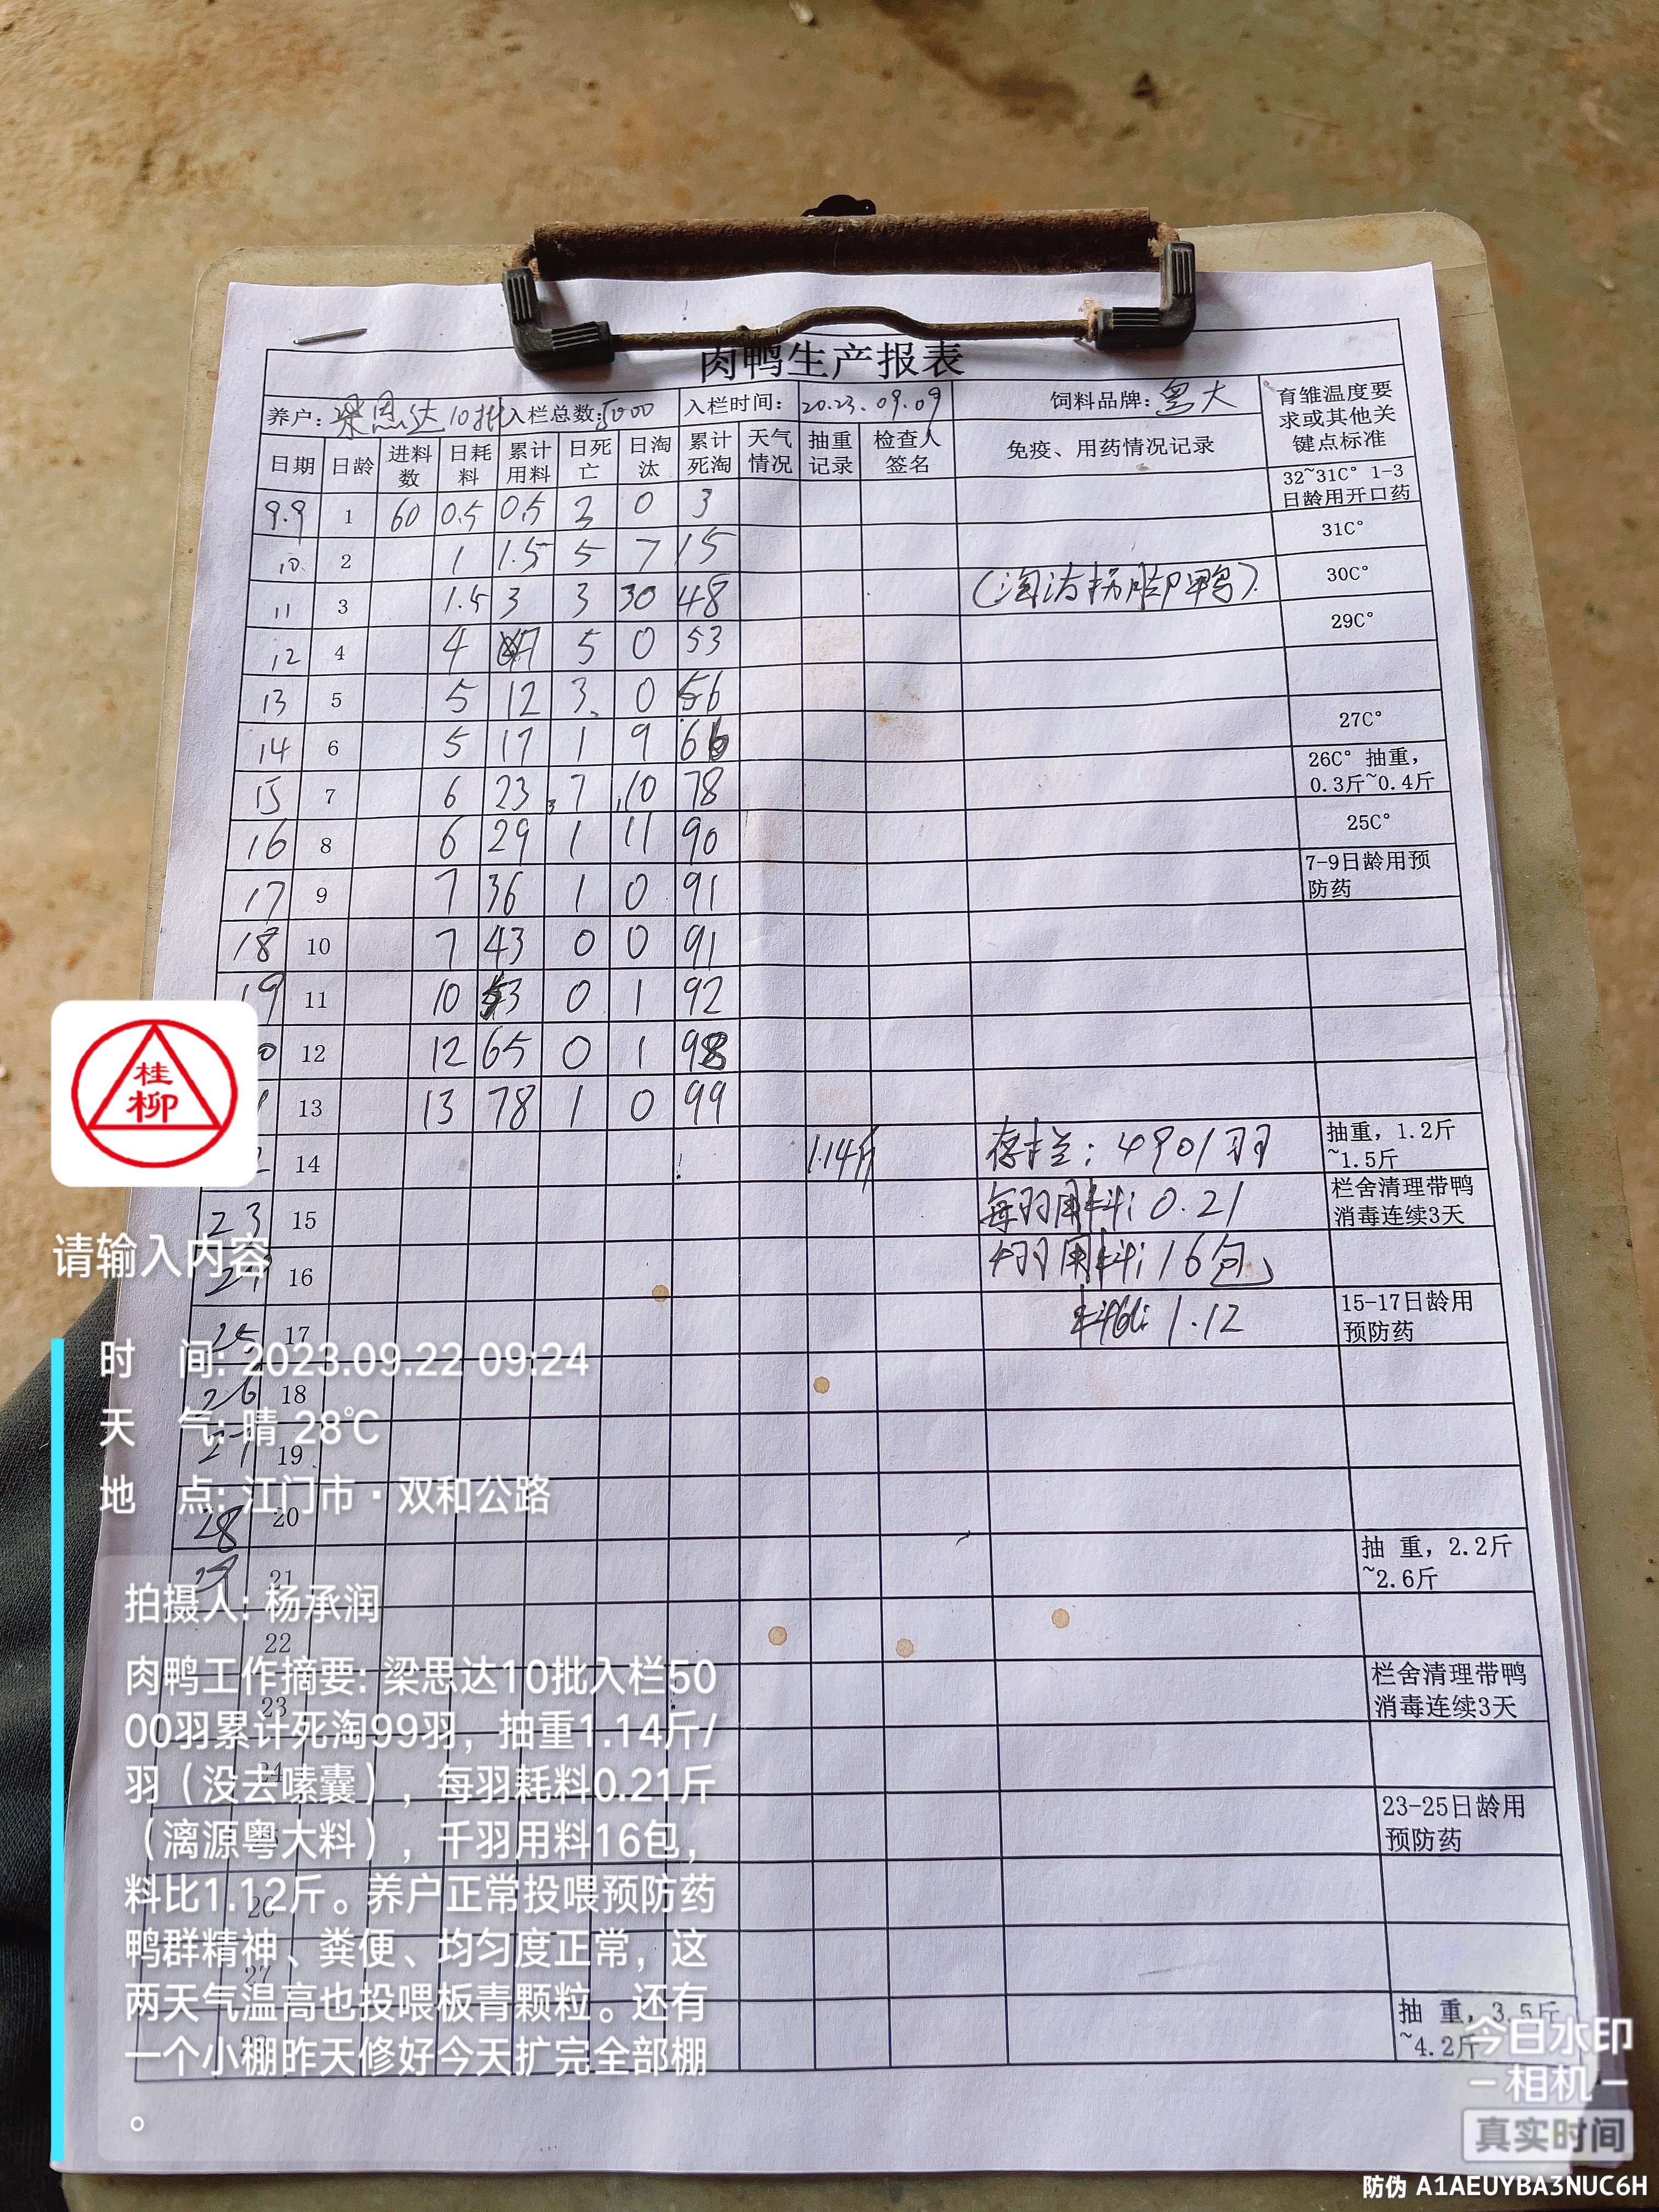 肉鸭生产报表
养户: 梁思达10批 入栏总数:5000 入栏时间: 2023.09.09 饲料品牌: 粤大 育雏温度要求或其他关键点标准
日期 日龄 进料数 日耗料 累计用料 日死亡 日淘汰 累计死淘 天气情况 抽重记录 检查人签名 免疫、用药情况记录
9.9 1 60 0.5 0.5 3 0 3 32~31C° 1-3日龄用开口药
10 2 1 1.5 5 7 15 31C°
11 3 1.5 3 3 30 48 (淘汰拐脚鸭) 30C°
12 4 4 7 5 0 53 29C°
13 5 5 12 3 0 56
14 6 5 17 1 9 66 27C°
15 7 6 23 7 10 78 26C° 抽重,0.3斤~0.4斤
16 8 6 29 1 11 90 25C°
17 9 7 36 1 0 91 7-9日龄用预防药
18 10 7 43 0 0 91
19 11 10 53 0 1 92
12 12 65 0 1 98
13 13 78 1 0 99
14 1.14斤 存栏: 4901羽 抽重, 1.2斤~1.5斤
23 15 每羽用料: 0.21 栏舍清理带鸭消毒连续3天
24 16 千羽用料: 16包
25 17 料比: 1.12 15-17日龄用预防药
26 18
27 19
28 20
29 21 抽 重, 2.2斤~2.6斤
22
23 栏舍清理带鸭消毒连续3天
24
23-25日龄用预防药
26
27
28 抽 重, 3.5斤~4.2斤
桂柳
请输入内容
时 间: 2023.09.22 09:24
天 气: 晴 28℃
地 点: 江门市·双和公路
拍摄人: 杨承润
肉鸭工作摘要: 梁思达10批入栏50
00羽累计死淘99羽，抽重1.14斤/
羽（没去嗉囊），每羽耗料0.21斤
（漓源粤大料），千羽用料16包，
料比1.12斤。养户正常投喂预防药
鸭群精神、粪便、均匀度正常，这
两天气温高也投喂板青颗粒。还有
一个小棚昨天修好今天扩完全部棚
。
今日水印
相机
真实时间
防伪 A1AEUYBA3NUC6H